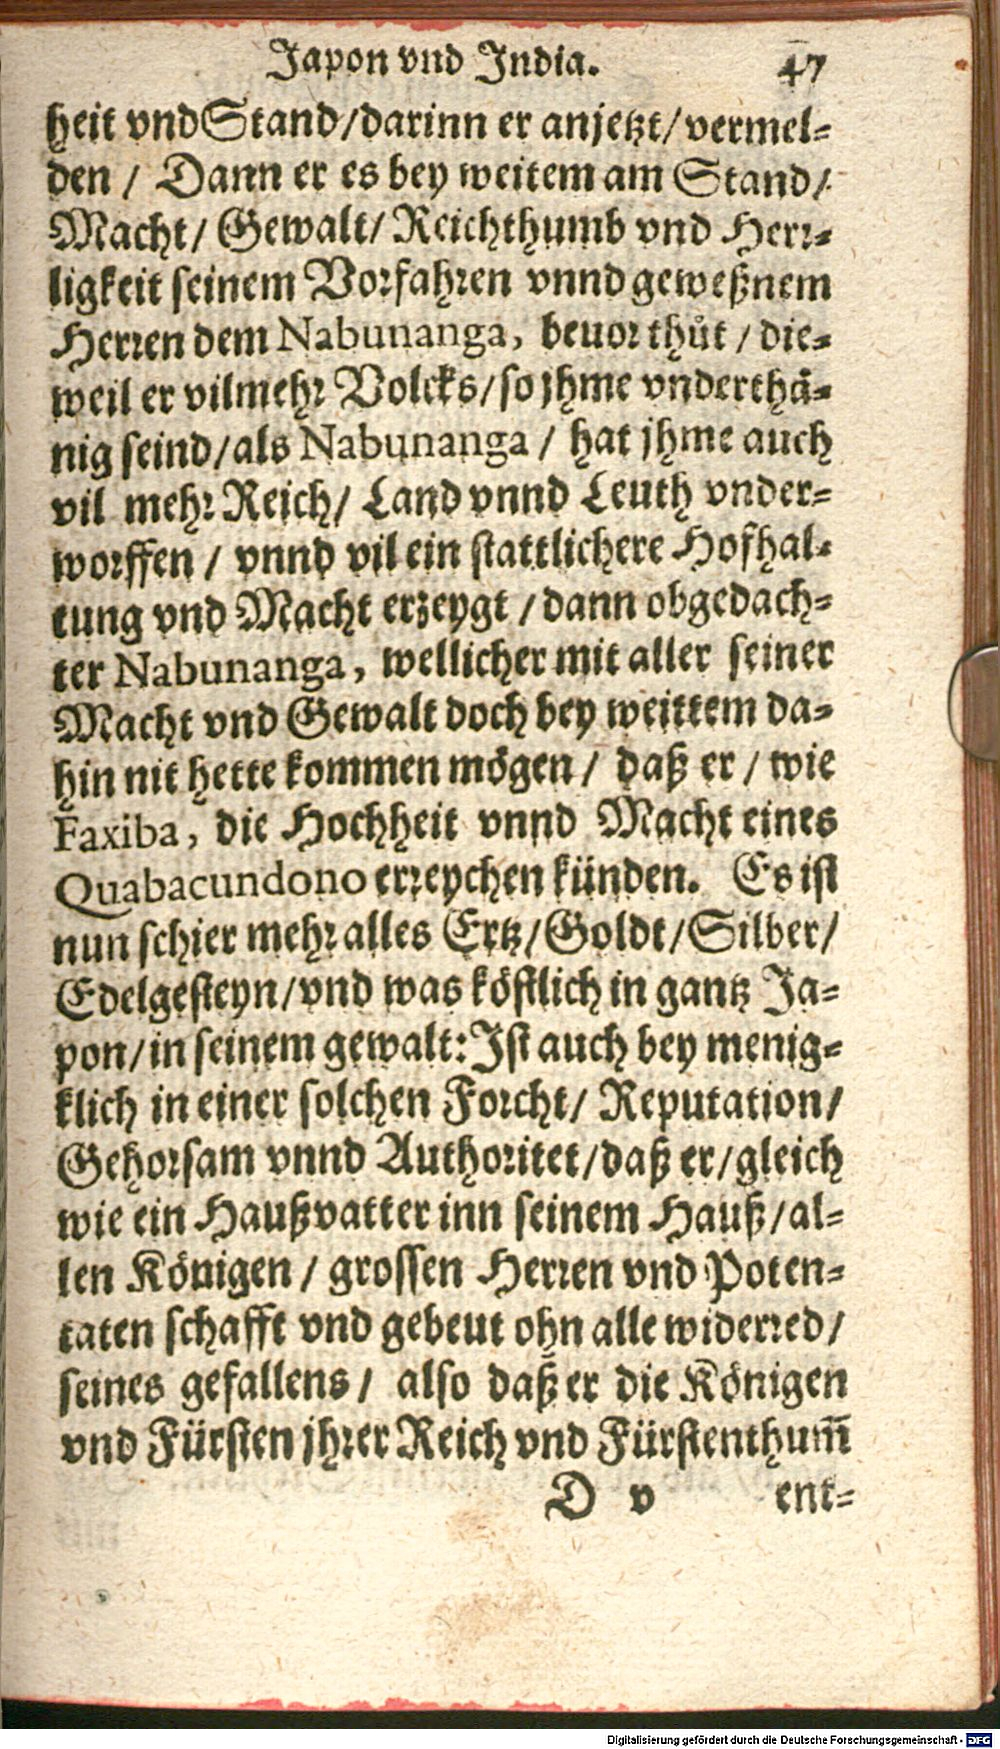 Japon vnd India. 47
heit vnd Stand/darinn er anjetzt/vermel-
den / Dann er es bey weitem am Stand/
Macht/ Gewalt/ Reichthumb vnd Herr-
ligkeit seinem Vorfahren vnnd geweßnem
Herren dem Nabunanga, beuor thůt / die-
weil er vilmehr Volcks/so jhme vnderthä-
nig seind/als Nabunanga / hat jhme auch
vil mehr Reich/ Land vnnd Leuth vnder-
worffen / vnnd vil ein stattlichere Hofhal-
tung vnd Macht erzeygt / dann obgedach-
ter Nabunanga, wellicher mit aller seiner
Macht vnd Gewalt doch bey weittem da-
hin nit hette kommen mögen / daß er / wie
Faxiba, die Hochheit vnnd Macht eines
Quabacundono erreychen künden. Es ist
nun schier mehr alles Ertz/Goldt/Silber/
Edelgesteyn/vnd was köstlich in gantz Ja-
pon/in seinem gewalt: Ist auch bey menig-
klich in einer solchen Forcht/ Reputation/
Gehorsam vnnd Authoritet/daß er/gleich
wie ein Haußvatter inn seinem Hauß/al-
len Königen / grossen Herren vnd Poten-
taten schafft vnd gebeut ohn alle widerred/
seines gefallens/ also daß er die Königen
vnd Fürsten jhrer Reich vnd Fürstenthum̃
D v ent-
Digitalisierung gefördert durch die Deutsche Forschungsgemeinschaft - DFG